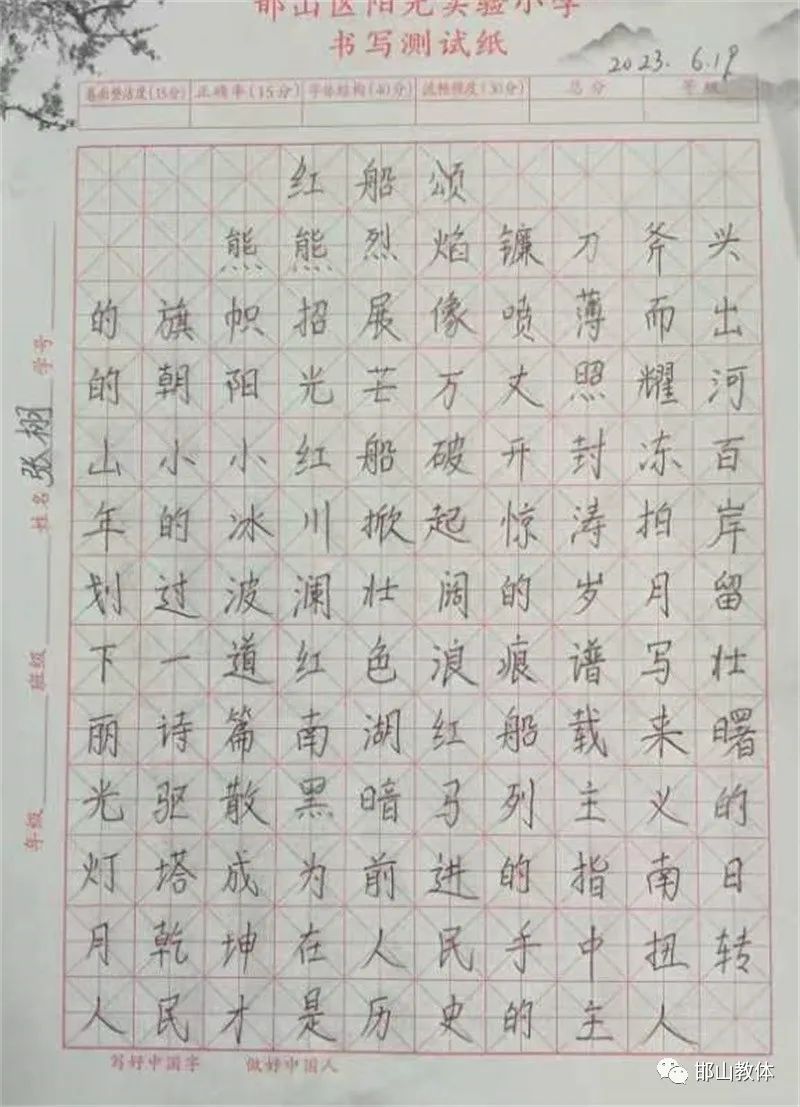 邯山区阳光实验小学
书写测试纸
2023. 6.19
卷面整洁度(15分) 正确率(15分) 字体结构(40分) 流畅程度(30分) 总分 等级
红船颂
熊熊烈焰镰刀斧头
的旗帜招展像喷薄而出
的朝阳光芒万丈照耀河
山小小红船破开封冻百
年的冰川掀起惊涛拍岸
划过波澜壮阔的岁月留
下一道红色浪痕谱写壮
丽诗篇南湖红船载来曙
光驱散黑暗马列主义的
灯塔成为前进的指南日
月乾坤在人民手中扭转
人民才是历史的主人
写好中国字 做好中国人
年级 班级 姓名 张栩 学号
邯山教体